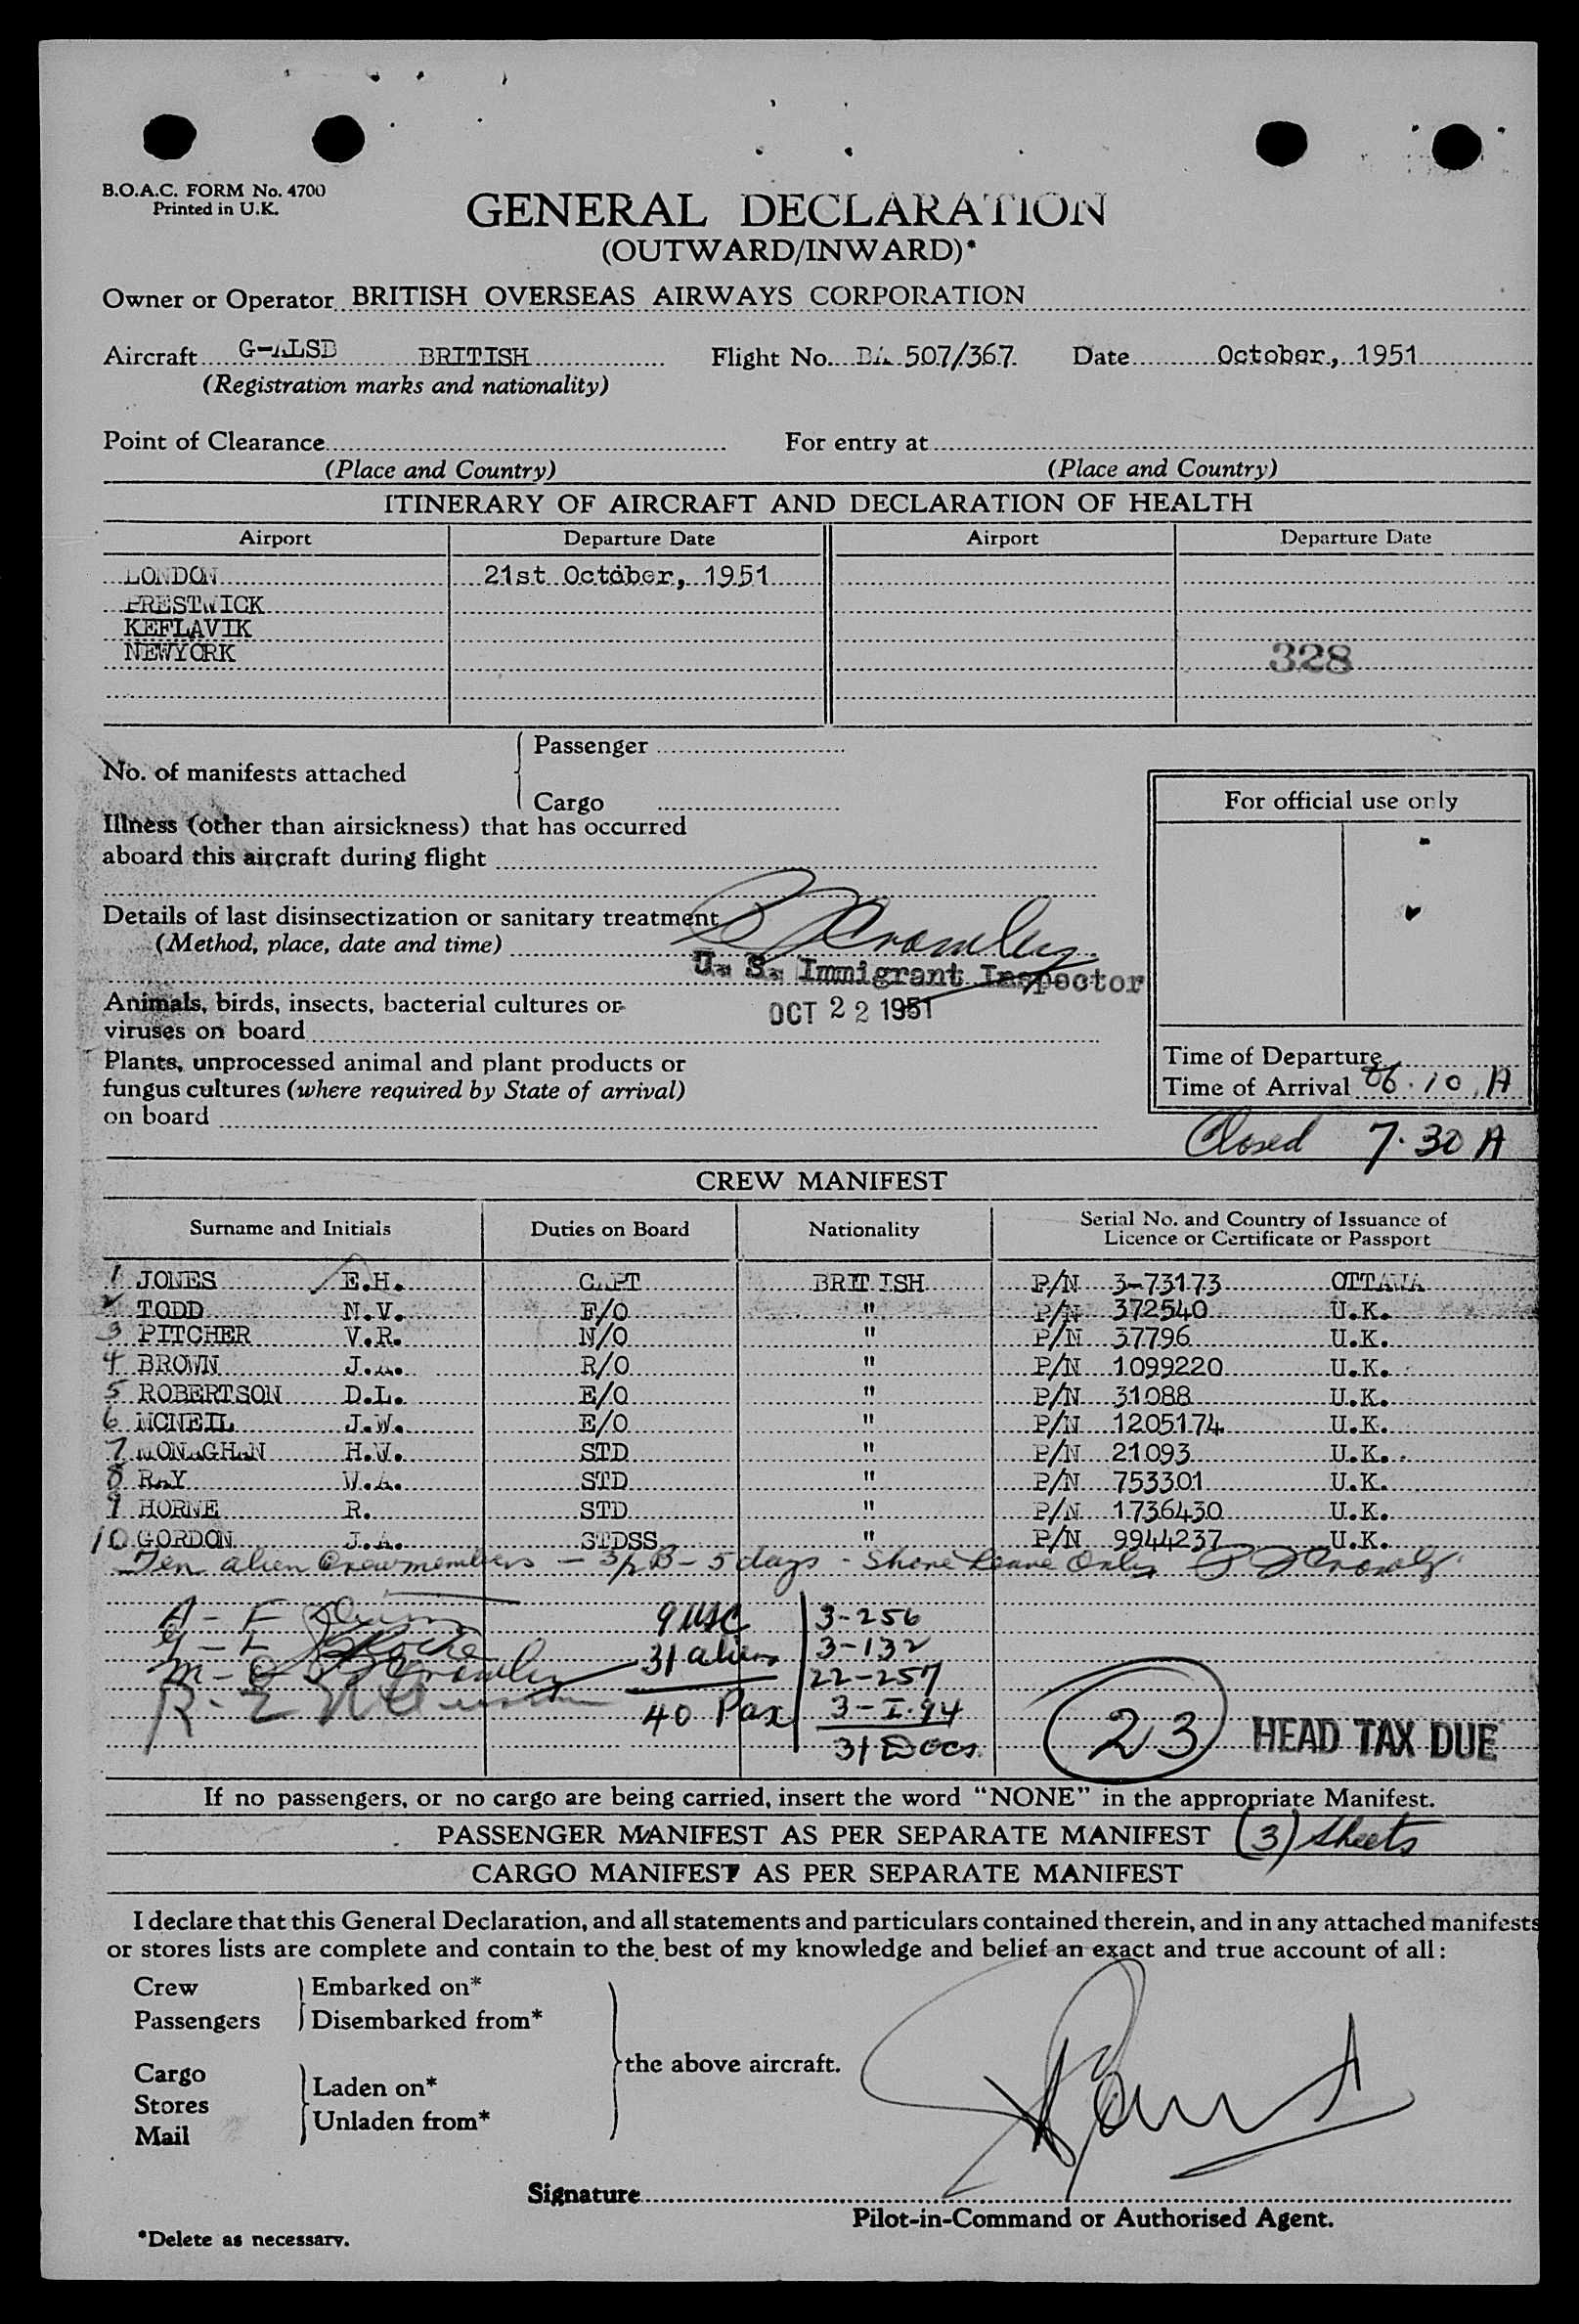 B.O.A.C. FORM No. 4700
Printed in U.K.
GENERAL DECLARATION
(OUTWARD/INWARD)*
Owner or Operator BRITISH OVERSEAS AIRWAYS CORPORATION
Aircraft G-ALSD BRITISH Flight No. BA 507/367 Date October, 1951
(Registration marks and nationality)
Point of Clearance For entry at
(Place and Country) (Place and Country)
ITINERARY OF AIRCRAFT AND DECLARATION OF HEALTH
Airport Departure Date Airport Departure Date
LONDON 21st October, 1951
PRESTWICK
KEFLAVIK
NEWYORK 328
Passenger
No. of manifests attached
Cargo
For official use only
Illness (other than airsickness) that has occurred
aboard this aircraft during flight
Details of last disinsectization or sanitary treatment
(Method, place, date and time)
U. S. Immigrant Inspector
OCT 22 1951
Animals, birds, insects, bacterial cultures or
viruses on board
Plants, unprocessed animal and plant products or
fungus cultures (where required by State of arrival)
on board
Time of Departure
Time of Arrival 06.10 A
Closed 7.30 A
CREW MANIFEST
Surname and Initials Duties on Board Nationality Serial No. and Country of Issuance of
Licence or Certificate or Passport
1 JONES E.H. CAPT BRITISH P/N 3-73173 OTTAWA
2 TODD N.V. F/O " P/N 372540 U.K.
3 PITCHER V.R. N/O " P/N 37796 U.K.
4 BROWN J.A. R/O " P/N 1099220 U.K.
5 ROBERTSON D.L. E/O " P/N 31088 U.K.
6 MCNEIL J.W. E/O " P/N 1205174 U.K.
7 MONAGHAN H.W. STD " P/N 21093 U.K.
8 RAY W.A. STD " P/N 753301 U.K.
9 HORNE R. STD " P/N 1736430 U.K.
10 GORDON J.A. STDSS " P/N 9944237 U.K.
Ten alien Crewmembers - 3/2 B - 5 days - Shore Leave Only
9 USC 3-256
31 aliens 3-132
22-257
40 Pax 3-I-94
31 Docs.
23 HEAD TAX DUE
If no passengers, or no cargo are being carried, insert the word "NONE" in the appropriate Manifest.
PASSENGER MANIFEST AS PER SEPARATE MANIFEST (3) Sheets
CARGO MANIFEST AS PER SEPARATE MANIFEST
I declare that this General Declaration, and all statements and particulars contained therein, and in any attached manifests
or stores lists are complete and contain to the best of my knowledge and belief an exact and true account of all:
Crew Embarked on*
Passengers Disembarked from*
the above aircraft.
Cargo
Laden on*
Stores
Unladen from*
Mail
Signature
Pilot-in-Command or Authorised Agent.
*Delete as necessary.